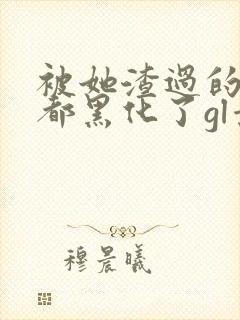 被她渣过的
都黑化了gl
穆晨曦